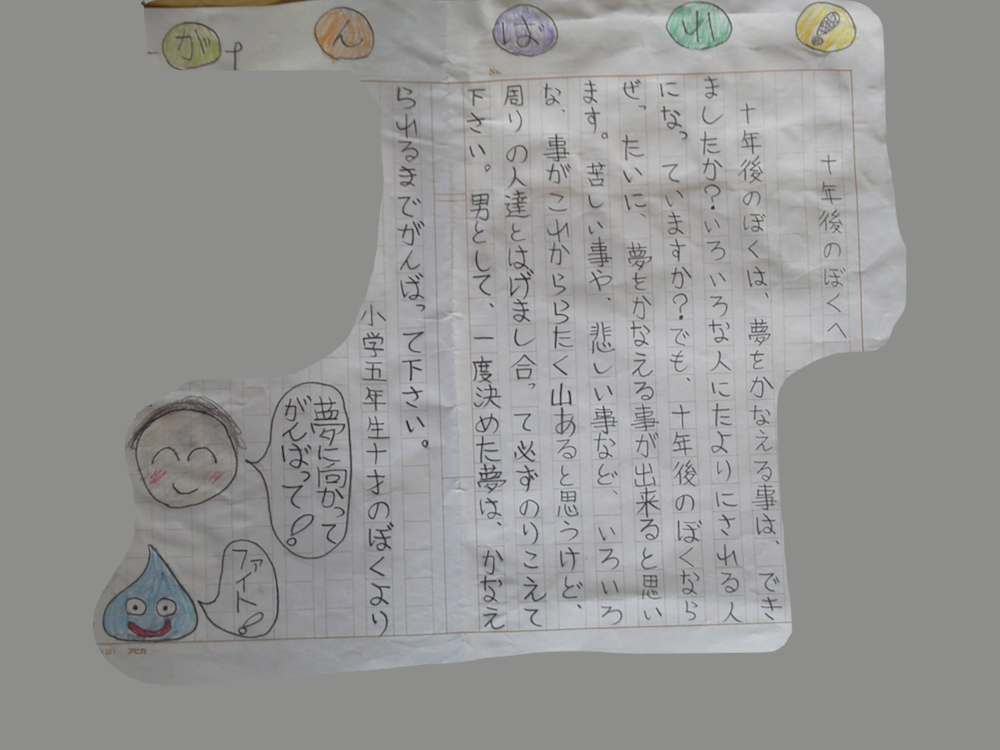 がんばれ!
No.
十年後のぼくへ
十年後のぼくは、夢をかなえる事は、でき
ましたか?いろいろな人にたよりにされる人
になっていますか?でも、十年後のぼくなら
ぜったいに、夢をかなえる事が出来ると思い
ます。苦しい事や、悲しい事など、いろいろ
な、事がこれかららたく山あると思うけど、
周りの人達とはげまし合って必ずのりこえて
下さい。男として、一度決めた夢は、かなえ
られるまでがんばって下さい。
小学五年生十才のぼくより
夢に向かって
がんばって!
ファイト!
アピカ